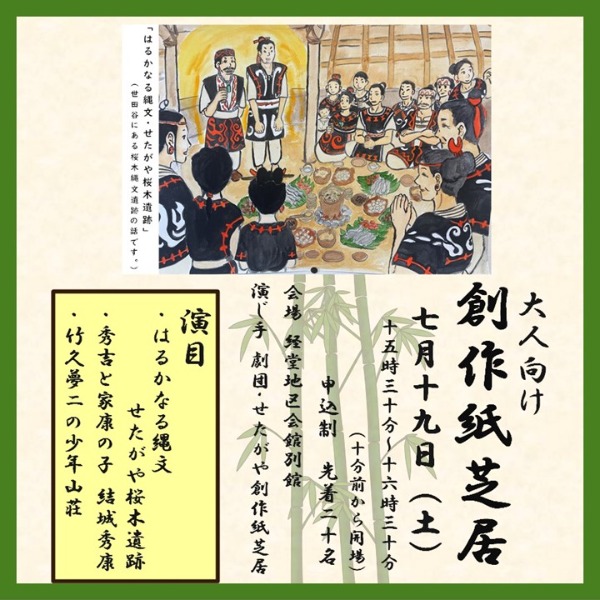 「はるかなる縄文・せたがや桜木遺跡」
（世田谷にある桜木縄文遺跡の話です。）
大人向け
創作紙芝居
七月十九日（土）
十五時三十分～十六時三十分
（十分前から開場）
申込制　先着二十名
会場　経堂地区会館別館
演じ手　劇団・せたがや創作紙芝居
演目
・はるかなる縄文
せたがや桜木遺跡
・秀吉と家康の子　結城秀康
・竹久夢二の少年山荘